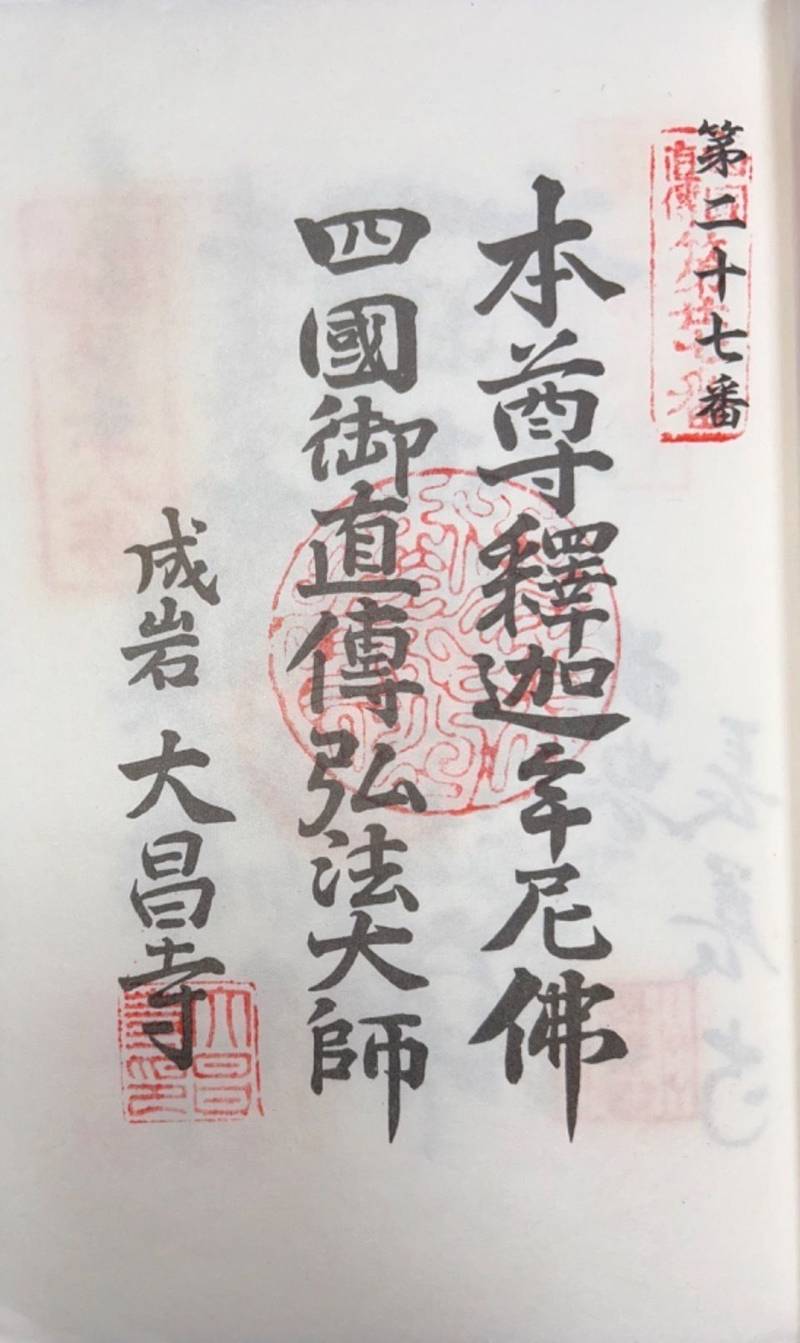 第二十七番
本尊釋迦牟尼佛
四國御直傳弘法大師
成岩 大昌寺
大昌寺印